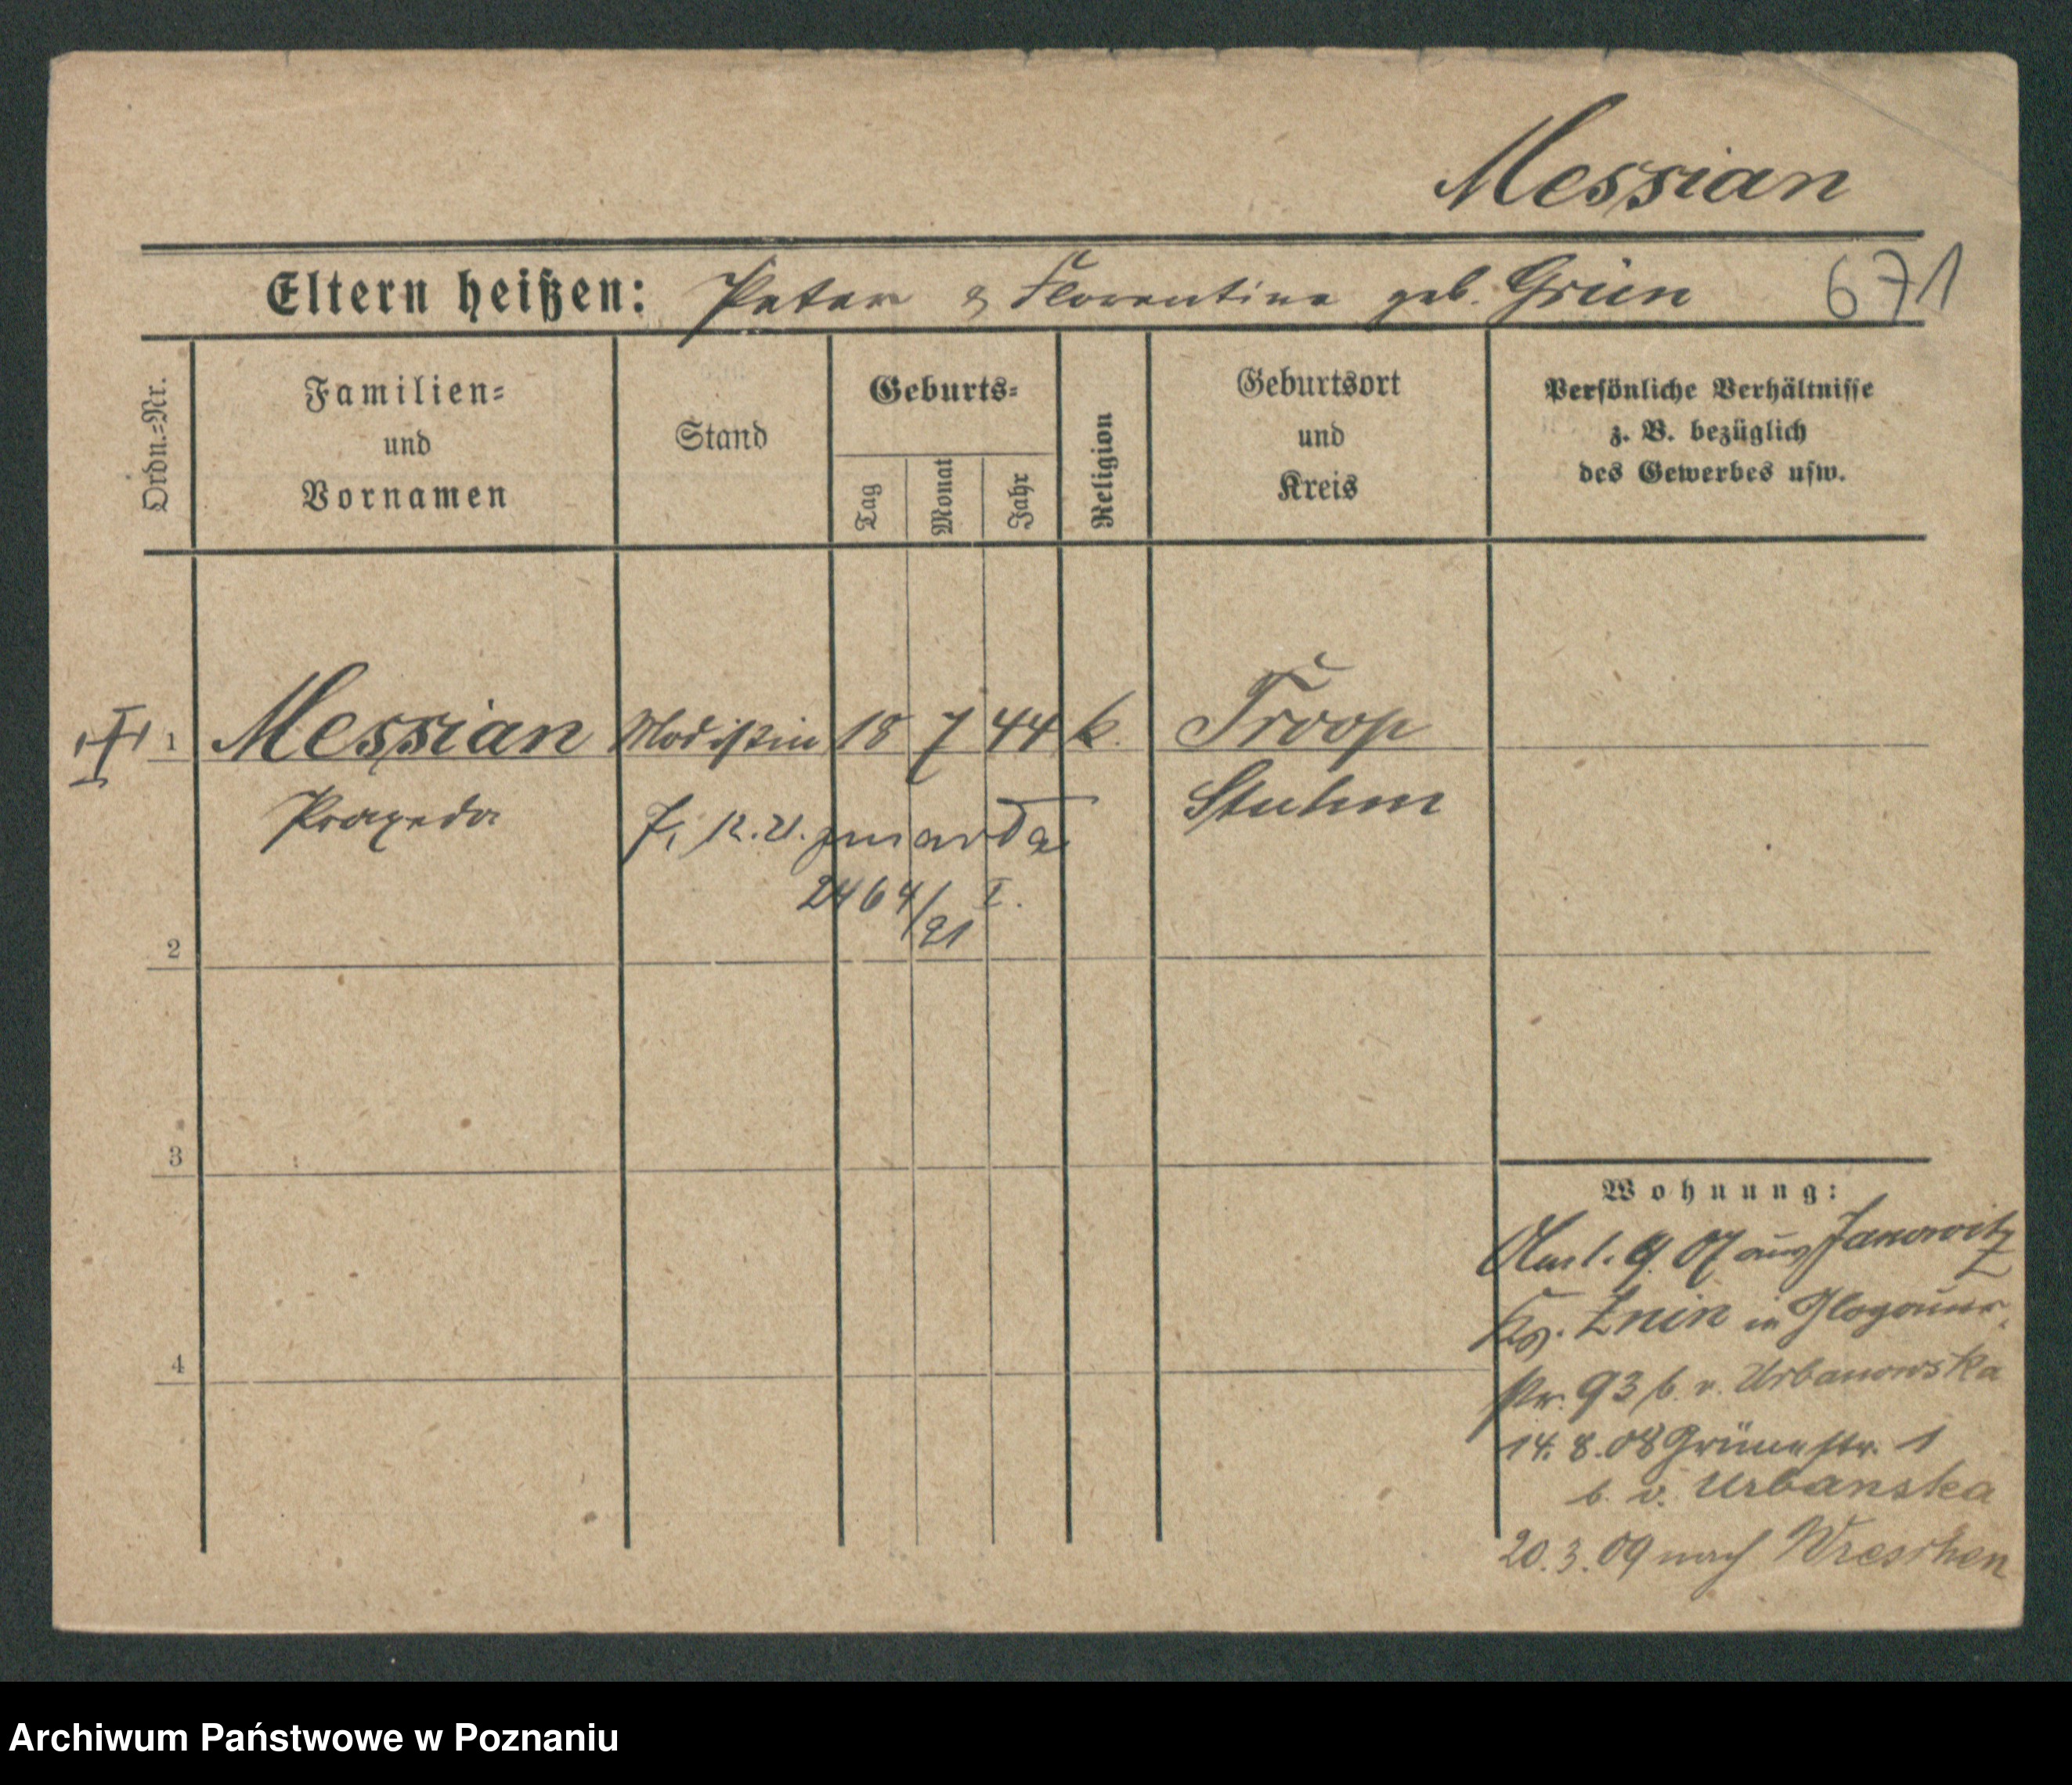 Messian
Eltern heißen: Peter & Florentine geb. Grün 671
Ordn.=Nr.
Familien=
und
Vornamen
Stand
Geburts=
Tag
Monat
Jahr
Religion
Geburtsort
und
Kreis
Persönliche Verhältnisse
z. B. bezüglich
des Gewerbes usw.
1 Messian Modistin 18 7 44 k. Troop
Praxeda Stuhm
zmarła
2464/21 I.
2
3
4
Wohnung:
9. 07 aus Janowitz
Znin in Glogauer
str. 93 b. v. Urbanowska
14. 8. 08 Grünestr. 1
b. v. Urbanska
20. 3. 09 nach Wreschen
Archiwum Państwowe w Poznaniu